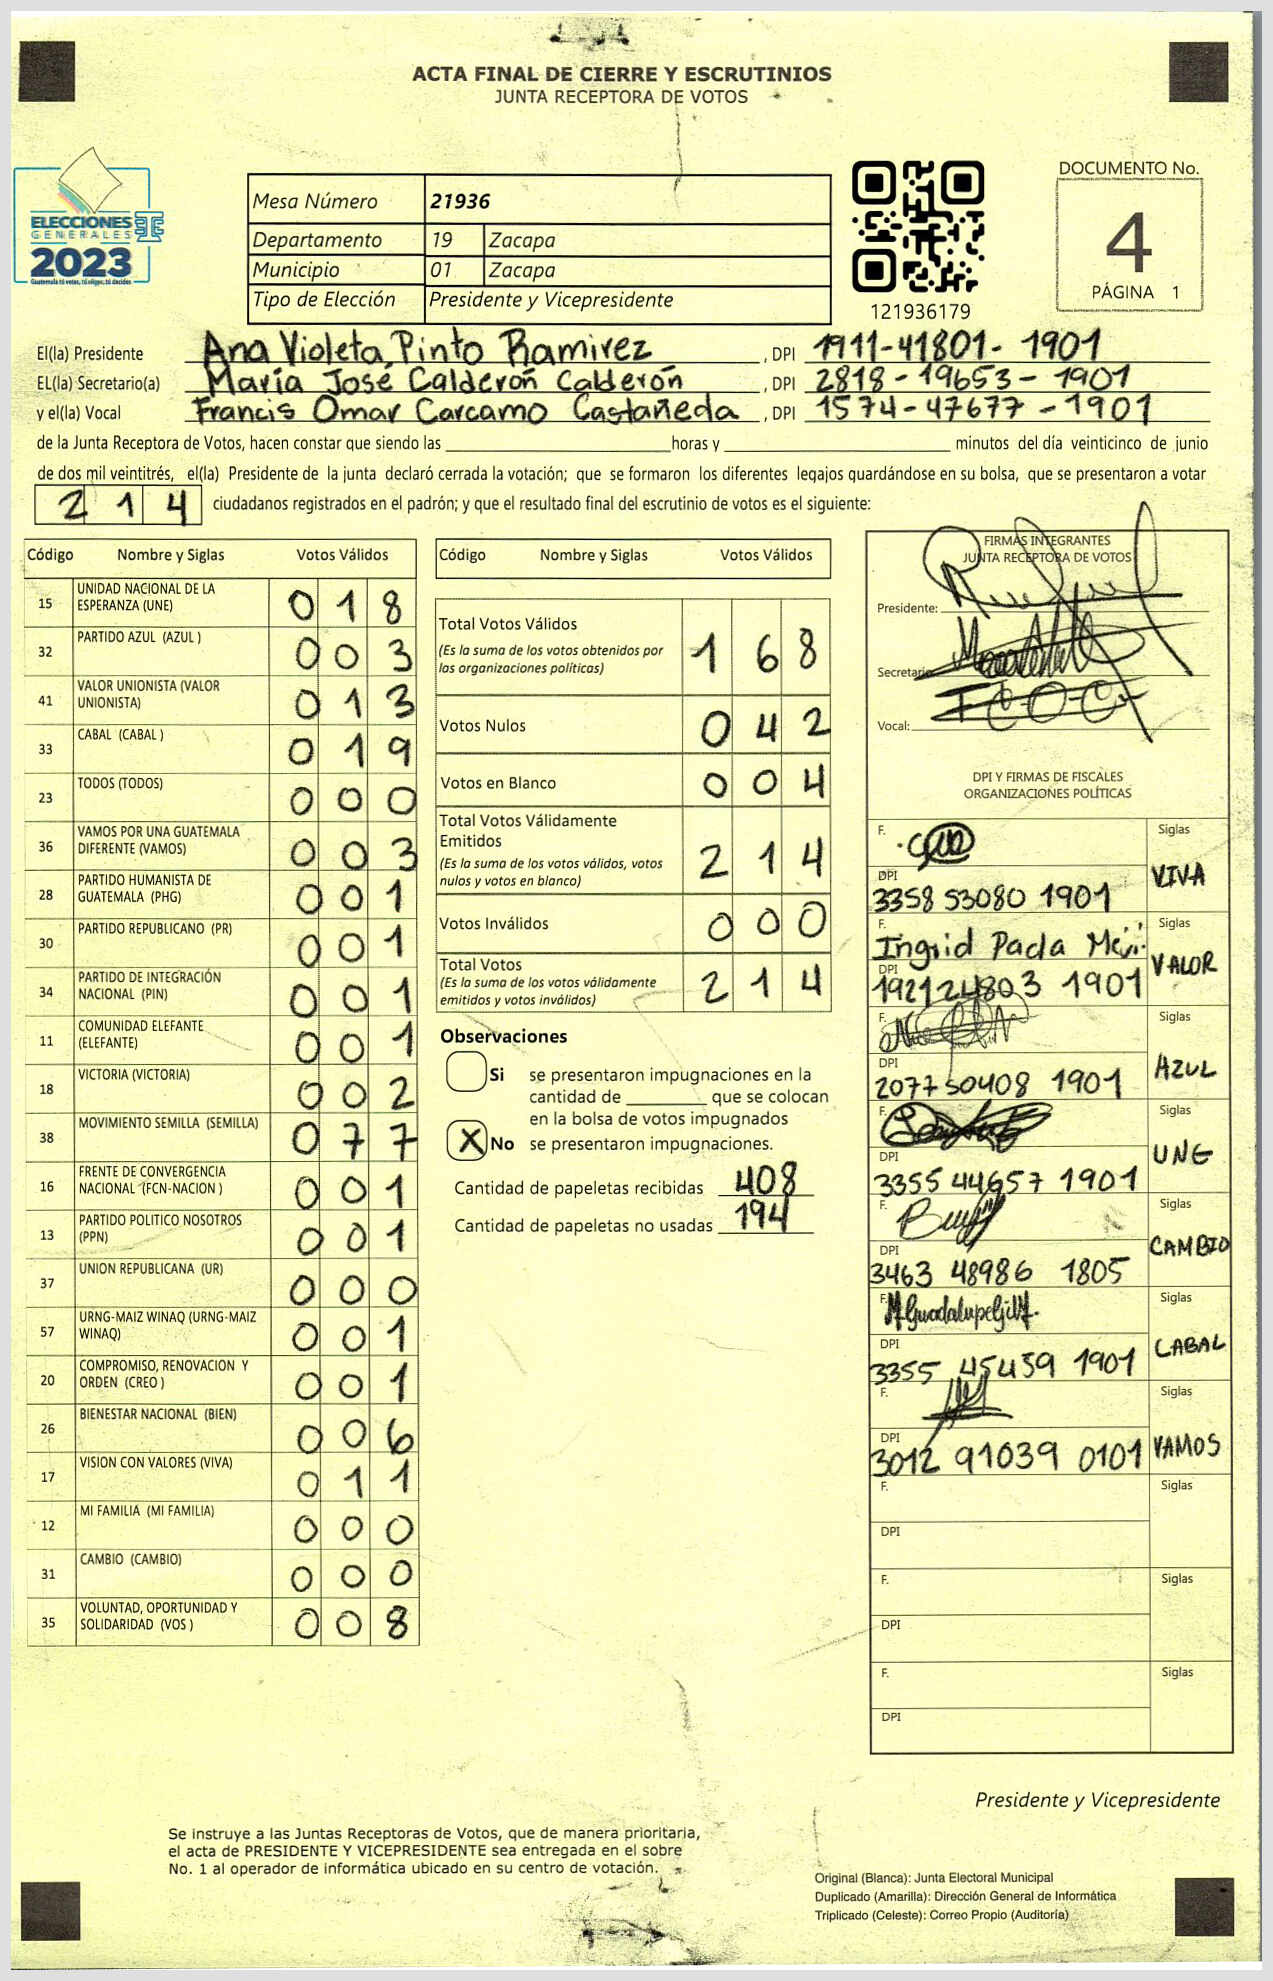 ACTA FINAL DE CIERRE Y ESCRUTINIOS
JUNTA RECEPTORA DE VOTOS
ELECCIONES
GENERALES
2023
Guatemala tú votas, tú eliges, tú decides
Mesa Número 21936
Departamento 19 Zacapa
Municipio 01 Zacapa
Tipo de Elección Presidente y Vicepresidente
121936179
DOCUMENTO No.
4
PÁGINA 1
El(la) Presidente Ana Violeta Pinto Ramirez , DPI 1911-41801-1901
EL(la) Secretario(a) María José Calderón Calderón , DPI 2818-19653-1901
y el(la) Vocal Francis Omar Carcamo Castañeda , DPI 1574-47677-1901
de la Junta Receptora de Votos, hacen constar que siendo las horas y minutos del día veinticinco de junio
de dos mil veintitrés, el(la) Presidente de la junta declaró cerrada la votación; que se formaron los diferentes legajos guardándose en su bolsa, que se presentaron a votar
214 ciudadanos registrados en el padrón; y que el resultado final del escrutinio de votos es el siguiente:
Código Nombre y Siglas Votos Válidos
15 UNIDAD NACIONAL DE LA ESPERANZA (UNE) 018
32 PARTIDO AZUL (AZUL ) 003
41 VALOR UNIONISTA (VALOR UNIONISTA) 013
33 CABAL (CABAL ) 019
23 TODOS (TODOS) 000
36 VAMOS POR UNA GUATEMALA DIFERENTE (VAMOS) 003
28 PARTIDO HUMANISTA DE GUATEMALA (PHG) 001
30 PARTIDO REPUBLICANO (PR) 001
34 PARTIDO DE INTEGRACIÓN NACIONAL (PIN) 001
11 COMUNIDAD ELEFANTE (ELEFANTE) 001
18 VICTORIA (VICTORIA) 002
38 MOVIMIENTO SEMILLA (SEMILLA) 077
16 FRENTE DE CONVERGENCIA NACIONAL (FCN-NACION ) 001
13 PARTIDO POLITICO NOSOTROS (PPN) 001
37 UNION REPUBLICANA (UR) 000
57 URNG-MAIZ WINAQ (URNG-MAIZ WINAQ) 001
20 COMPROMISO, RENOVACION Y ORDEN (CREO ) 001
26 BIENESTAR NACIONAL (BIEN) 006
17 VISION CON VALORES (VIVA) 011
12 MI FAMILIA (MI FAMILIA) 000
31 CAMBIO (CAMBIO) 000
35 VOLUNTAD, OPORTUNIDAD Y SOLIDARIDAD (VOS ) 008
Código Nombre y Siglas Votos Válidos
Total Votos Válidos 168
(Es la suma de los votos obtenidos por
las organizaciones políticas)
Votos Nulos 042
Votos en Blanco 004
Total Votos Válidamente
Emitidos 214
(Es la suma de los votos válidos, votos
nulos y votos en blanco)
Votos Inválidos 000
Total Votos 214
(Es la suma de los votos válidamente
emitidos y votos inválidos)
Observaciones
Si se presentaron impugnaciones en la
cantidad de que se colocan
en la bolsa de votos impugnados
X No se presentaron impugnaciones.
Cantidad de papeletas recibidas 408
Cantidad de papeletas no usadas 194
FIRMAS INTEGRANTES
JUNTA RECEPTORA DE VOTOS
Presidente:
Secretario
Vocal:
DPI Y FIRMAS DE FISCALES
ORGANIZACIONES POLÍTICAS
F. Siglas
VIVA
DPI
3358 53080 1901
F. Ingrid Siglas
VALOR
DPI
1921 24803 1901
F. Siglas
AZUL
DPI
2077 50408 1901
F. Siglas
UNE
DPI
3355 44657 1901
F. Siglas
CAMBIO
DPI
3463 48986 1805
F. Siglas
CABAL
DPI
3355 45459 1901
F. Siglas
VAMOS
DPI
3012 91039 0101
F. Siglas
DPI
F. Siglas
DPI
F. Siglas
DPI
Presidente y Vicepresidente
Se instruye a las Juntas Receptoras de Votos, que de manera prioritaria,
el acta de PRESIDENTE Y VICEPRESIDENTE sea entregada en el sobre
No. 1 al operador de informática ubicado en su centro de votación.
Original (Blanca): Junta Electoral Municipal
Duplicado (Amarilla): Dirección General de Informática
Triplicado (Celeste): Correo Propio (Auditoría)